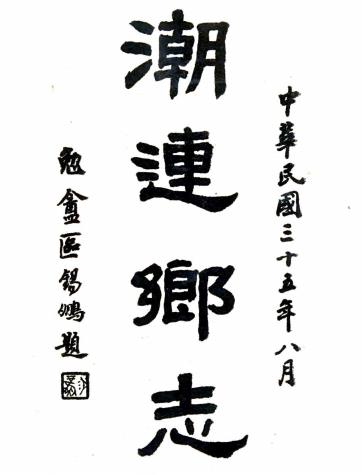 中華民國三十五年八月
潮連鄉志
勉盦區錫鵬題